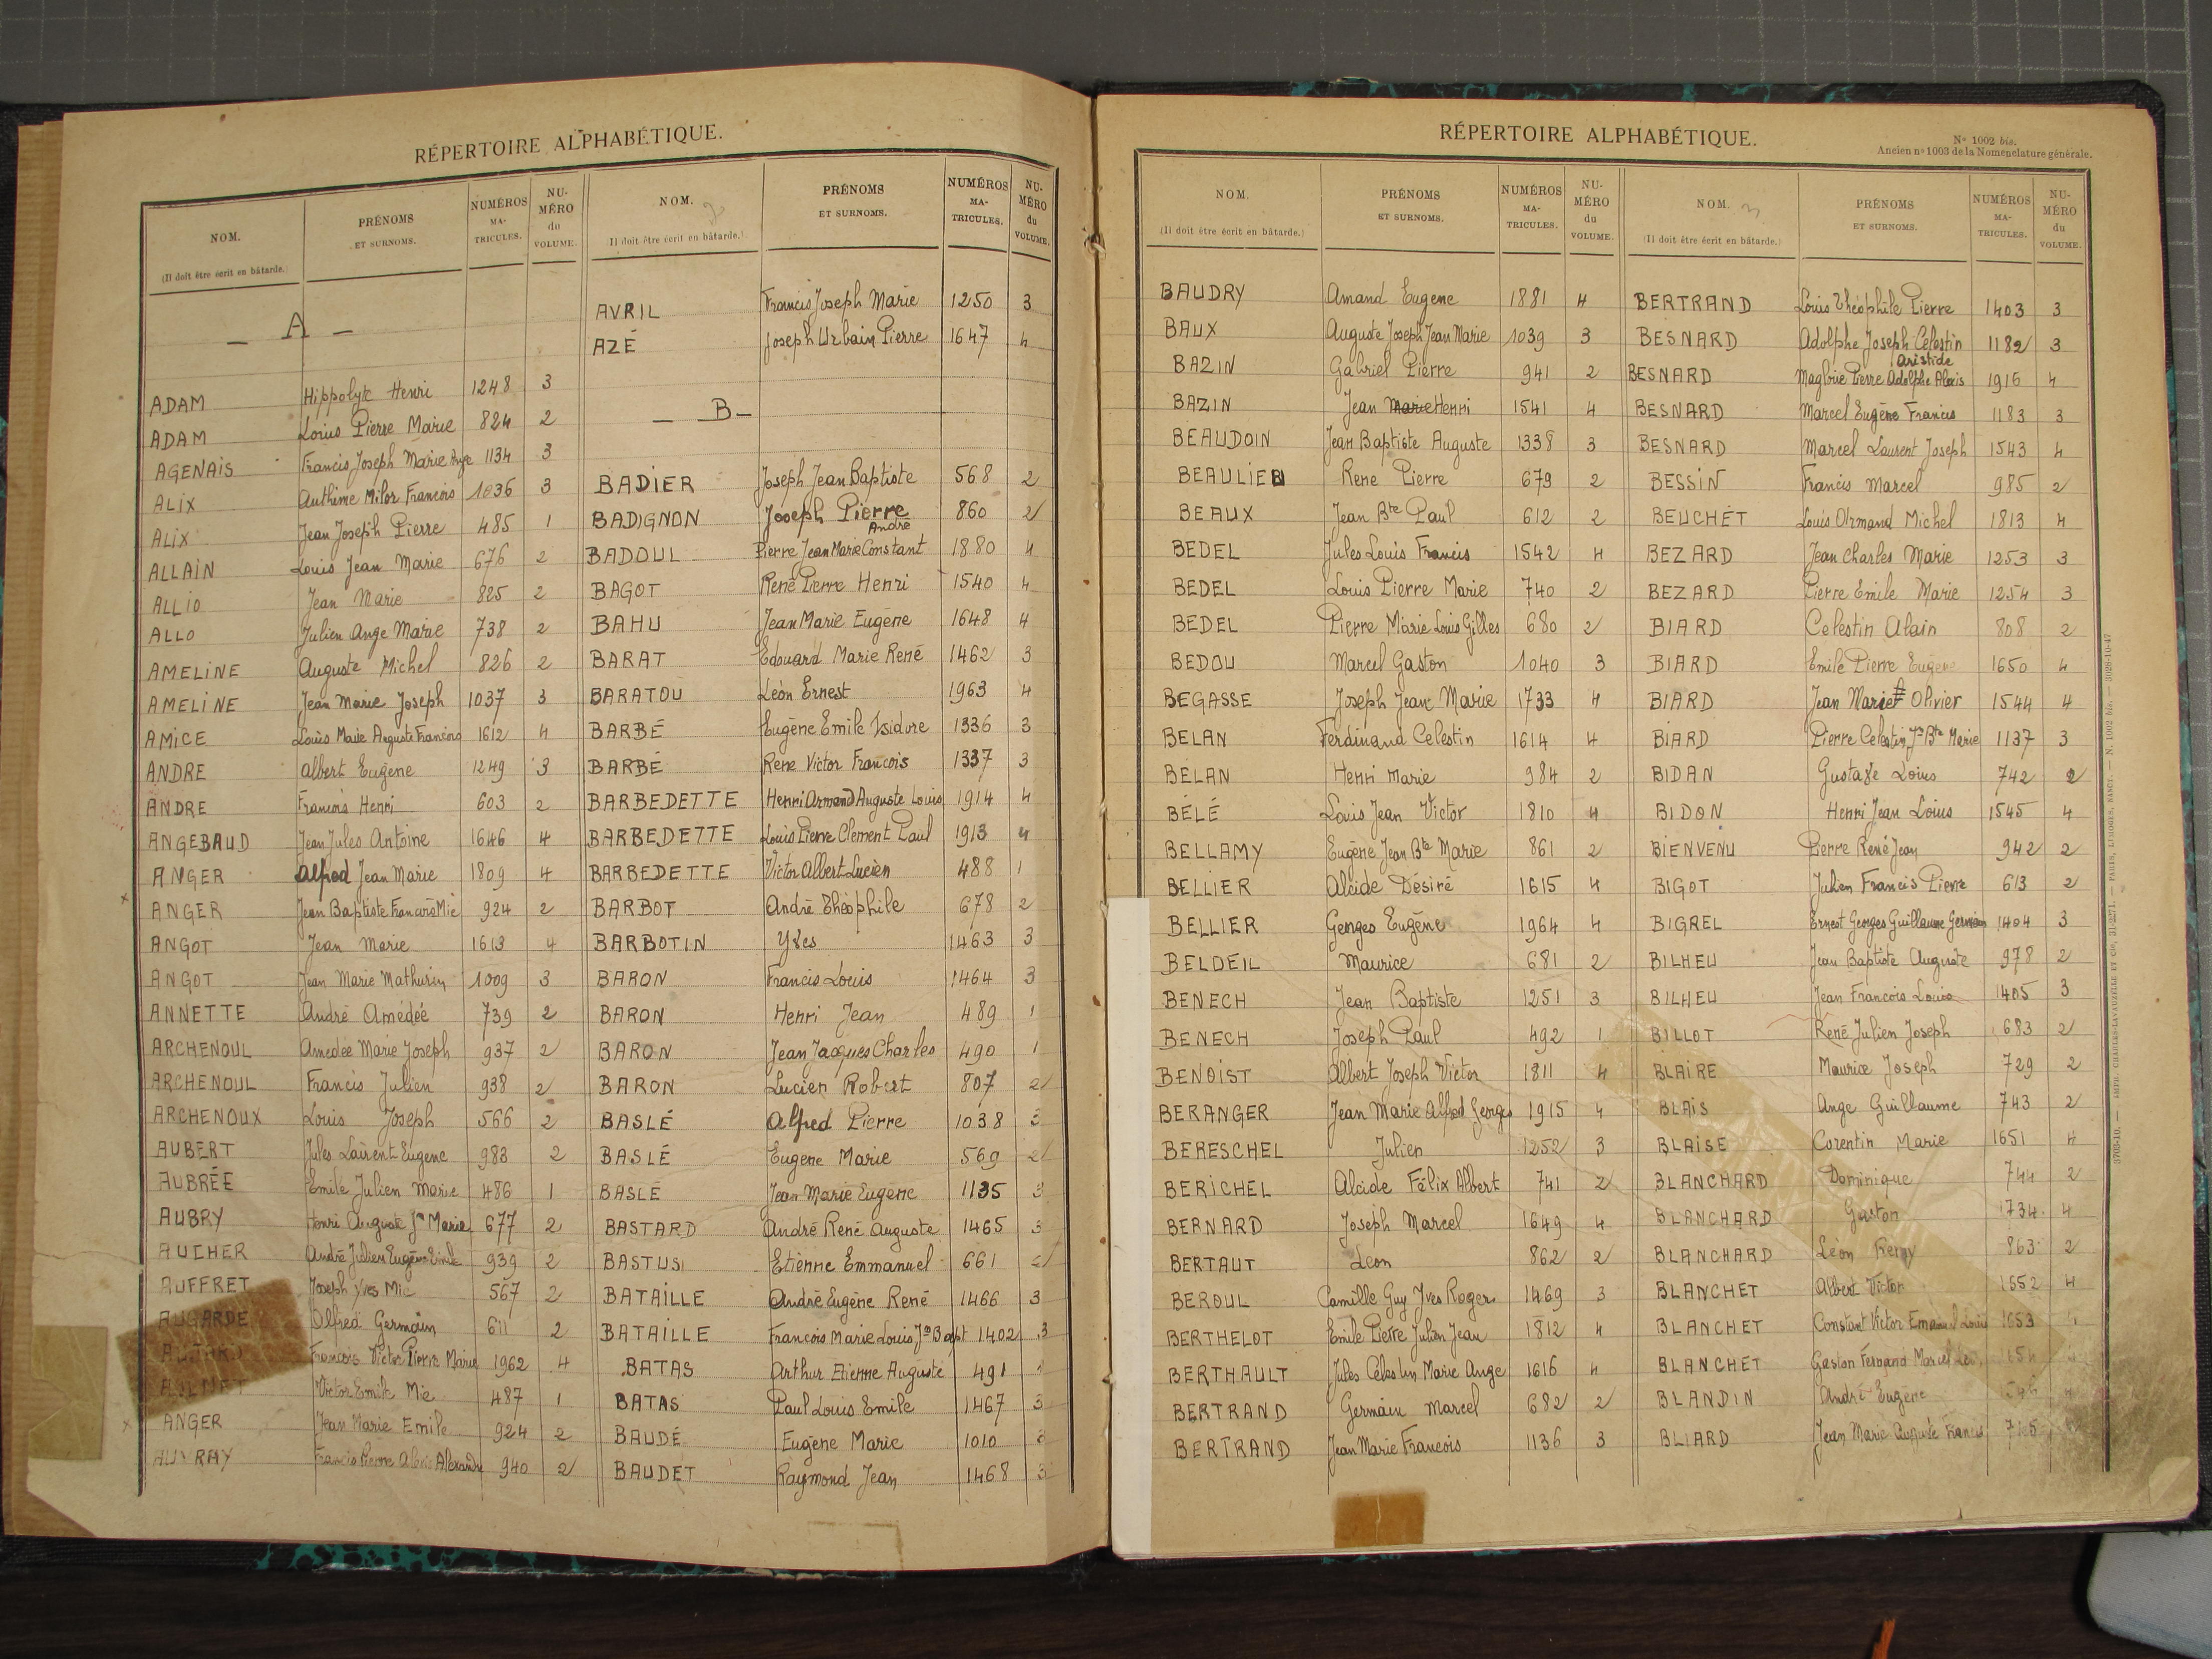 RÉPERTOIRE ALPHABÉTIQUE.
NOM. (Il doit être écrit en bâtarde.) PRÉNOMS ET SURNOMS. NUMÉROS MA-TRICULES. NU-MÉRO du VOLUME.
— A —
ADAM Hippolyte Henri 1248 3
ADAM Louis Pierre Marie 824 2
AGENAIS Francis Joseph Marie Ange 1134 3
ALIX Anthime Milor Francois 1036 3
ALIX Jean Joseph Pierre 485 1
ALLAIN Louis Jean Marie 676 2
ALLIO Jean Marie 825 2
ALLO Julien Ange Marie 738 2
AMELINE Auguste Michel 826 2
AMELINE Jean Marie Joseph 1037 3
AMICE Louis Marie Auguste Francois 1612 4
ANDRE Albert Eugene 1249 3
ANDRE Francois Henri 603 2
ANGEBAUD Jean Jules Antoine 1646 4
ANGER Alfred Jean Marie 1809 4
x ANGER Jean Baptiste Francois Mie 924 2
ANGOT Jean Marie 1613 4
ANGOT Jean Marie Mathurin 1009 3
ANNETTE André Amédée 739 2
ARCHENOUL Amedée Marie Joseph 937 2
ARCHENOUL Francis Julien 938 2
ARCHENOUX Louis Joseph 566 2
AUBERT Jules Laurent Eugene 983 2
AUBRÉE Emile Julien Marie 486 1
AUBRY Henri Auguste Jn Marie 677 2
AUCHER André Julien Eugène Emile 939 2
AUFFRET Joseph Yves Mie 567 2
AUGARDE Alfred Germain 611 2
Francois Victor Pierre Marie 1962 4
Victor Emile Mie 487 1
x ANGER Jean Marie Emile 924 2
AUVRAY Francis Pierre Alexandre 940 2
NOM. (Il doit être écrit en bâtarde.) PRÉNOMS ET SURNOMS. NUMÉROS MA-TRICULES. NU-MÉRO du VOLUME.
AVRIL Francis Joseph Marie 1250 3
AZÉ Joseph Urbain Pierre 1647 4
— B —
BADIER Joseph Jean Baptiste 568 2
BADIGNON Joseph Pierre André 860 2
BADOUL Pierre Jean Marie Constant 1880 4
BAGOT René Pierre Henri 1540 4
BAHU Jean Marie Eugène 1648 4
BARAT Edouard Marie René 1462 3
BARATOU Léon Ernest 1963 4
BARBÉ Eugène Emile Isidore 1336 3
BARBÉ Rene Victor Francois 1337 3
BARBEDETTE Henri Armand Auguste Louis 1914 4
BARBEDETTE Louis Pierre Clement Paul 1913 4
BARBEDETTE Victor Albert Lucien 488 1
BARBOT André Théophile 678 2
BARBOTIN Yves 1463 3
BARON Francis Louis 1464 3
BARON Henri Jean 489 1
BARON Jean Jacques Charles 490 1
BARON Lucien Robert 807 2
BASLÉ Alfred Pierre 1038 3
BASLÉ Eugene Marie 569 2
BASLÉ Jean Marie Eugene 1135 3
BASTARD André René Auguste 1465 3
BASTUSI Etienne Emmanuel 661 2
BATAILLE André Eugène René 1466 3
BATAILLE Francois Marie Louis Jn Bapt 1402 3
BATAS Arthur Etienne Auguste 491 1
BATAS Paul Louis Emile 1467 3
BAUDÉ Eugène Marie 1010 3
BAUDET Raymond Jean 1468 3
RÉPERTOIRE ALPHABÉTIQUE.
No 1002 bis.
Ancien no 1003 de la Nomenclature générale.
NOM. (Il doit être écrit en bâtarde.) PRÉNOMS ET SURNOMS. NUMÉROS MA-TRICULES. NU-MÉRO du VOLUME.
BAUDRY Amand Eugene 1881 4
BAUX Auguste Joseph Jean Marie 1039 3
BAZIN Gabriel Pierre 941 2
BAZIN Jean Marie Henri 1541 4
BEAUDOIN Jean Baptiste Auguste 1338 3
BEAULIEU Rene Pierre 679 2
BEAUX Jean Bte Paul 612 2
BEDEL Jules Louis Francis 1542 4
BEDEL Louis Pierre Marie 740 2
BEDEL Pierre Marie Louis Gilles 680 2
BEDOU Marcel Gaston 1040 3
BEGASSE Joseph Jean Marie 1733 4
BELAN Ferdinand Celestin 1614 4
BELAN Henri Marie 984 2
BÉLÉ Louis Jean Victor 1810 4
BELLAMY Eugène Jean Bte Marie 861 2
BELLIER Alcide Désiré 1615 4
BELLIER Georges Eugène 1964 4
BELOEIL Maurice 681 2
BENECH Jean Baptiste 1251 3
BENECH Joseph Paul 492 1
BENOIST Albert Joseph Victor 1811 4
BERANGER Jean Marie Alfred Georges 1915 4
BERESCHEL Julien 1252 3
BERICHEL Alcide Félix Albert 741 2
BERNARD Joseph Marcel 1649 4
BERTAUT Leon 862 2
BEROUL Camille Guy Yves Roger 1469 3
BERTHELOT Emile Pierre Julien Jean 1812 4
BERTHAULT Jules Celestin Marie Ange 1616 4
BERTRAND Germain Marcel 682 2
BERTRAND Jean Marie Francois 1136 3
NOM. (Il doit être écrit en bâtarde.) PRÉNOMS ET SURNOMS. NUMÉROS MA-TRICULES. NU-MÉRO du VOLUME.
BERTRAND Louis Théophile Pierre 1403 3
BESNARD Adolphe Joseph Célestin 1182 3
BESNARD Magloire Pierre Adolphe Alexis Aristide 1916 4
BESNARD Marcel Eugène Francis 1183 3
BESNARD Marcel Laurent Joseph 1543 4
BESSIN Francis Marcel 985 2
BEUCHET Louis Armand Michel 1813 4
BEZARD Jean Charles Marie 1253 3
BEZARD Pierre Emile Marie 1254 3
BIARD Celestin Alain 808 2
BIARD Emile Pierre Eugene 1650 4
BIARD Jean Marie Olivier 1544 4
BIARD Pierre Celestin Jn Bte Marie 1137 3
BIDAN Gustave Louis 742 2
BIDON Henri Jean Louis 1545 4
BIENVENU Pierre René Jean 942 2
BIGOT Julien Francis Pierre 613 2
BIGREL Ernest Georges Guillaume Germain 1404 3
BILHEU Jean Baptiste Auguste 978 2
BILHEU Jean Francois Louis 1405 3
BILLOT René Julien Joseph 683 2
BLAIRE Maurice Joseph 729 2
BLAIS Ange Guillaume 743 2
BLAISE Corentin Marie 1651 4
BLANCHARD Dominique 744 2
BLANCHARD Gaston 1734 4
BLANCHARD Léon Remy 863 2
BLANCHET Albert Victor 1652 4
BLANCHET Constant Victor Emanuel Louis 1653
BLANCHET Gaston Fernand Marcel
BLANDIN André Eugene
BLIARD Jean Marie Auguste Francis
3703-10. — IMP. CHARLES-LAVAUZELLE ET Cie, — PARIS, LIMOGES, NANCY. — N. 1002 bis. — 3028-10-47